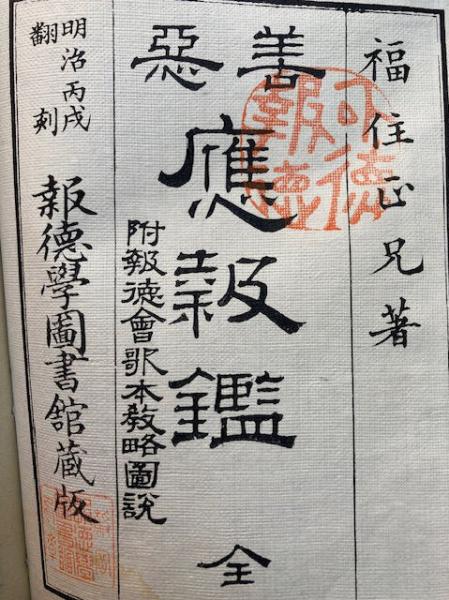 福住正兄著
善惡
應報鑑 全
附報徳會歌本教略圖說
明治丙戌
翻刻
報德學圖書館蔵版